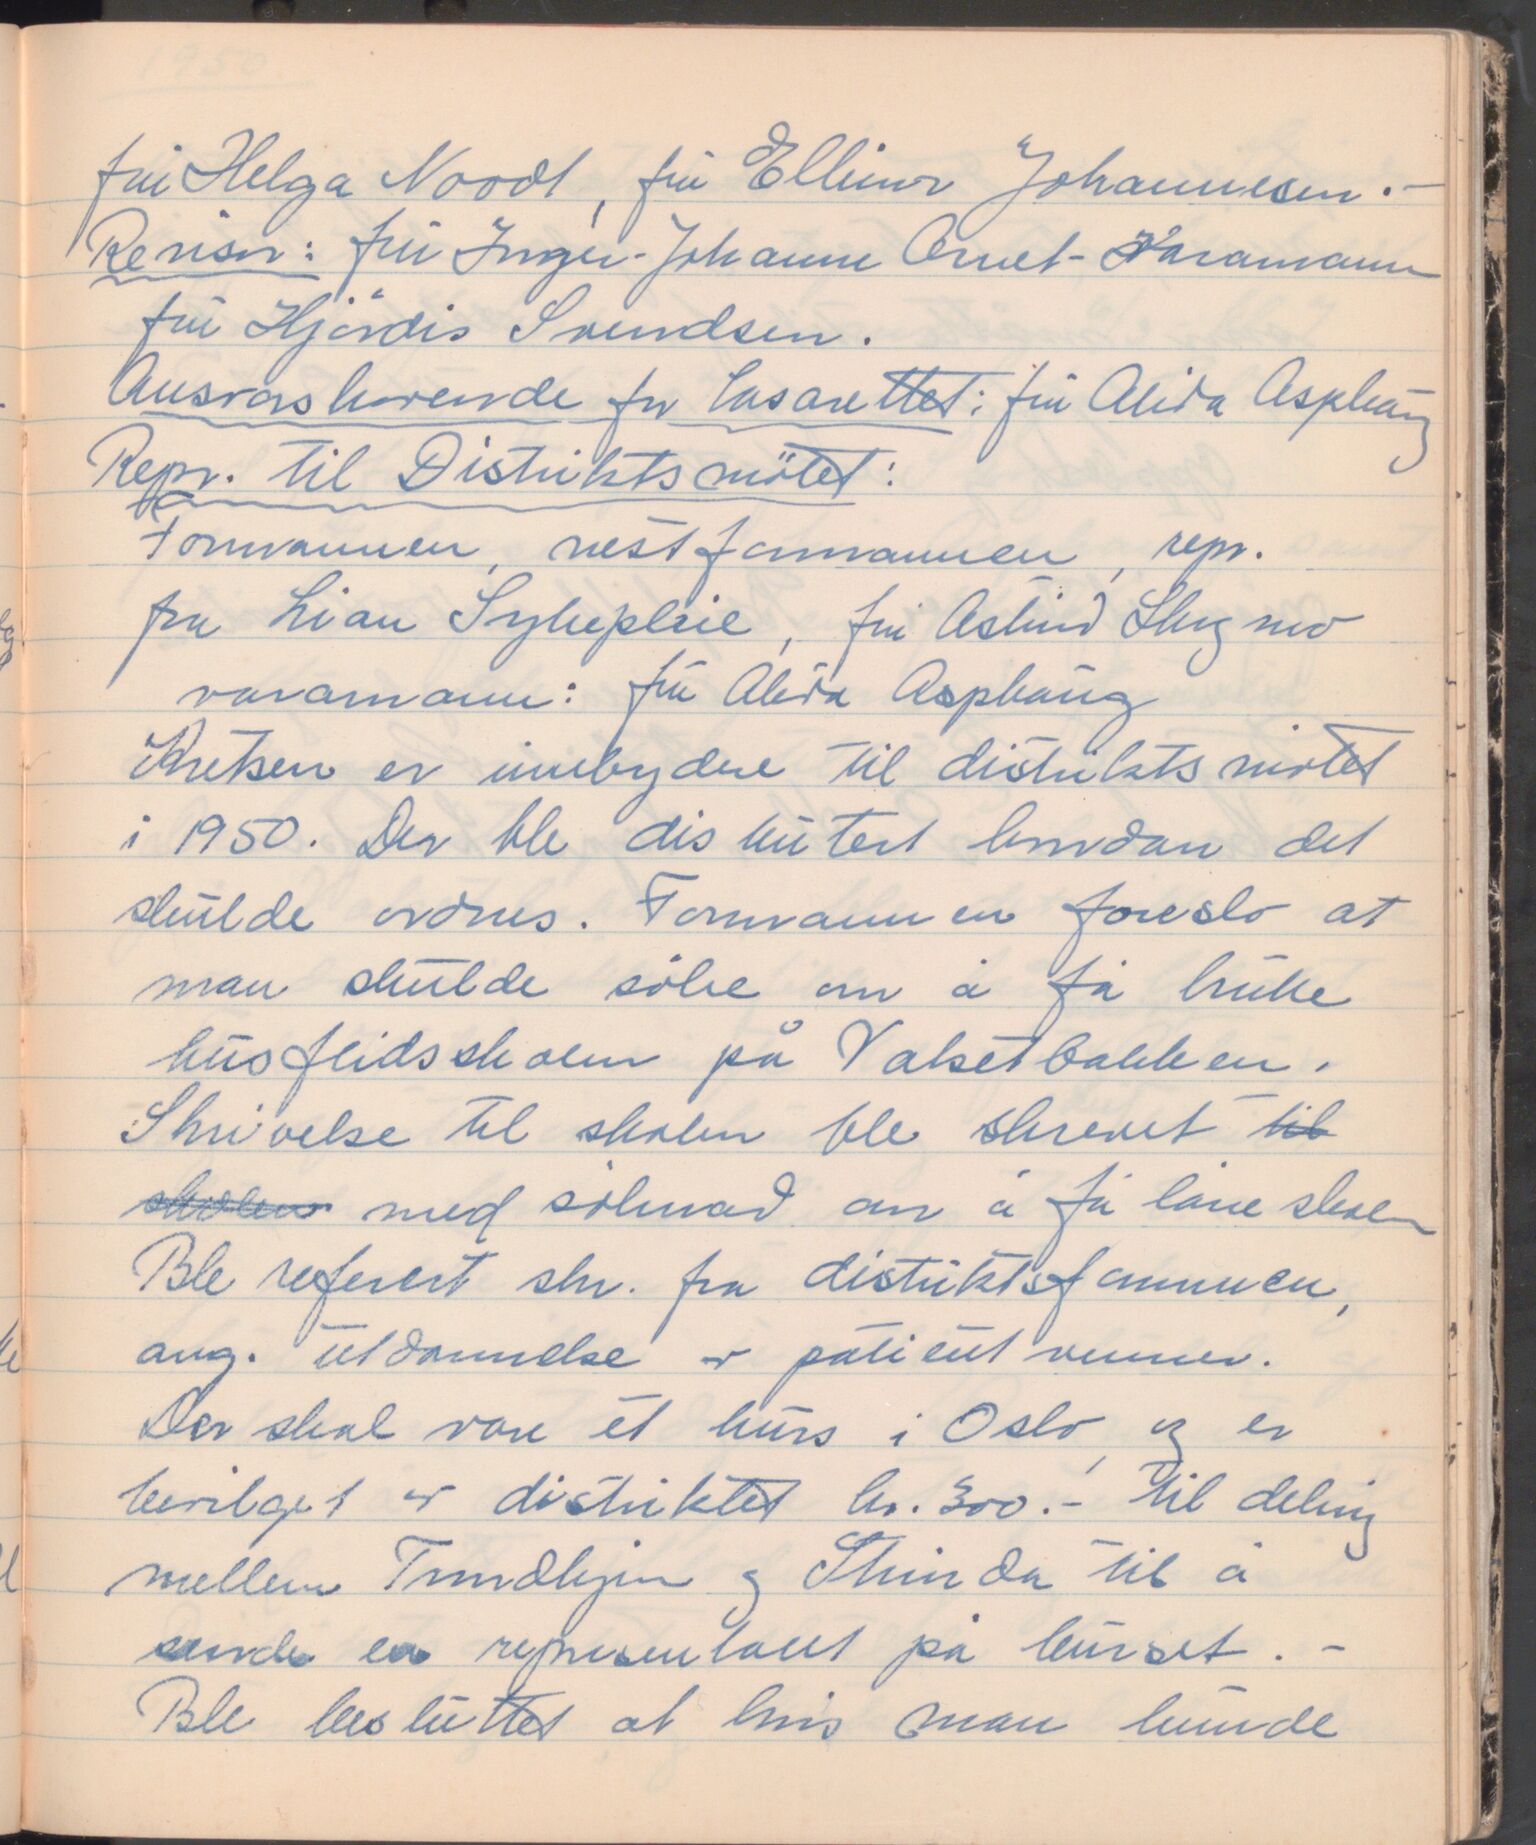 1950
frú Helga Noodt, frú Ellinor Johannesen.-
Revisor: frú Inger-Johanne Arnet - Varamann
frú Hjördis Svendsen.
Ansvarshavende for Lasarettet: frú Alida Aspháúg
Repr. til Distriktsmötet:
Formannen, nestformannen, repr.
fra Lian Sykepleie, frú Astrid Skogmo
varamann: frú Alida Aspháúg
Kretsen er innbydere til distriktsmötet
i 1950. Der ble diskútert hvordan det
skúlde ordnes. Formannen foreslo at
man skúlde söke om å få brúke
húsflidsskolen på Valsetbakken.
Skrivelse til skolen ble skrevet til
skolen med söknad om å få låne skolen
Ble referert skr. fra distriktsformannen,
ang. útdannelse av patientvenner.
Der skal være et kúrs i Oslo, og er
bevilget av distriktet kr. 300.- til deling
mellem Trondhjem og Strinda til å
sende en representant på kúrset. -
Ble beslúttet at hvis man kúnde